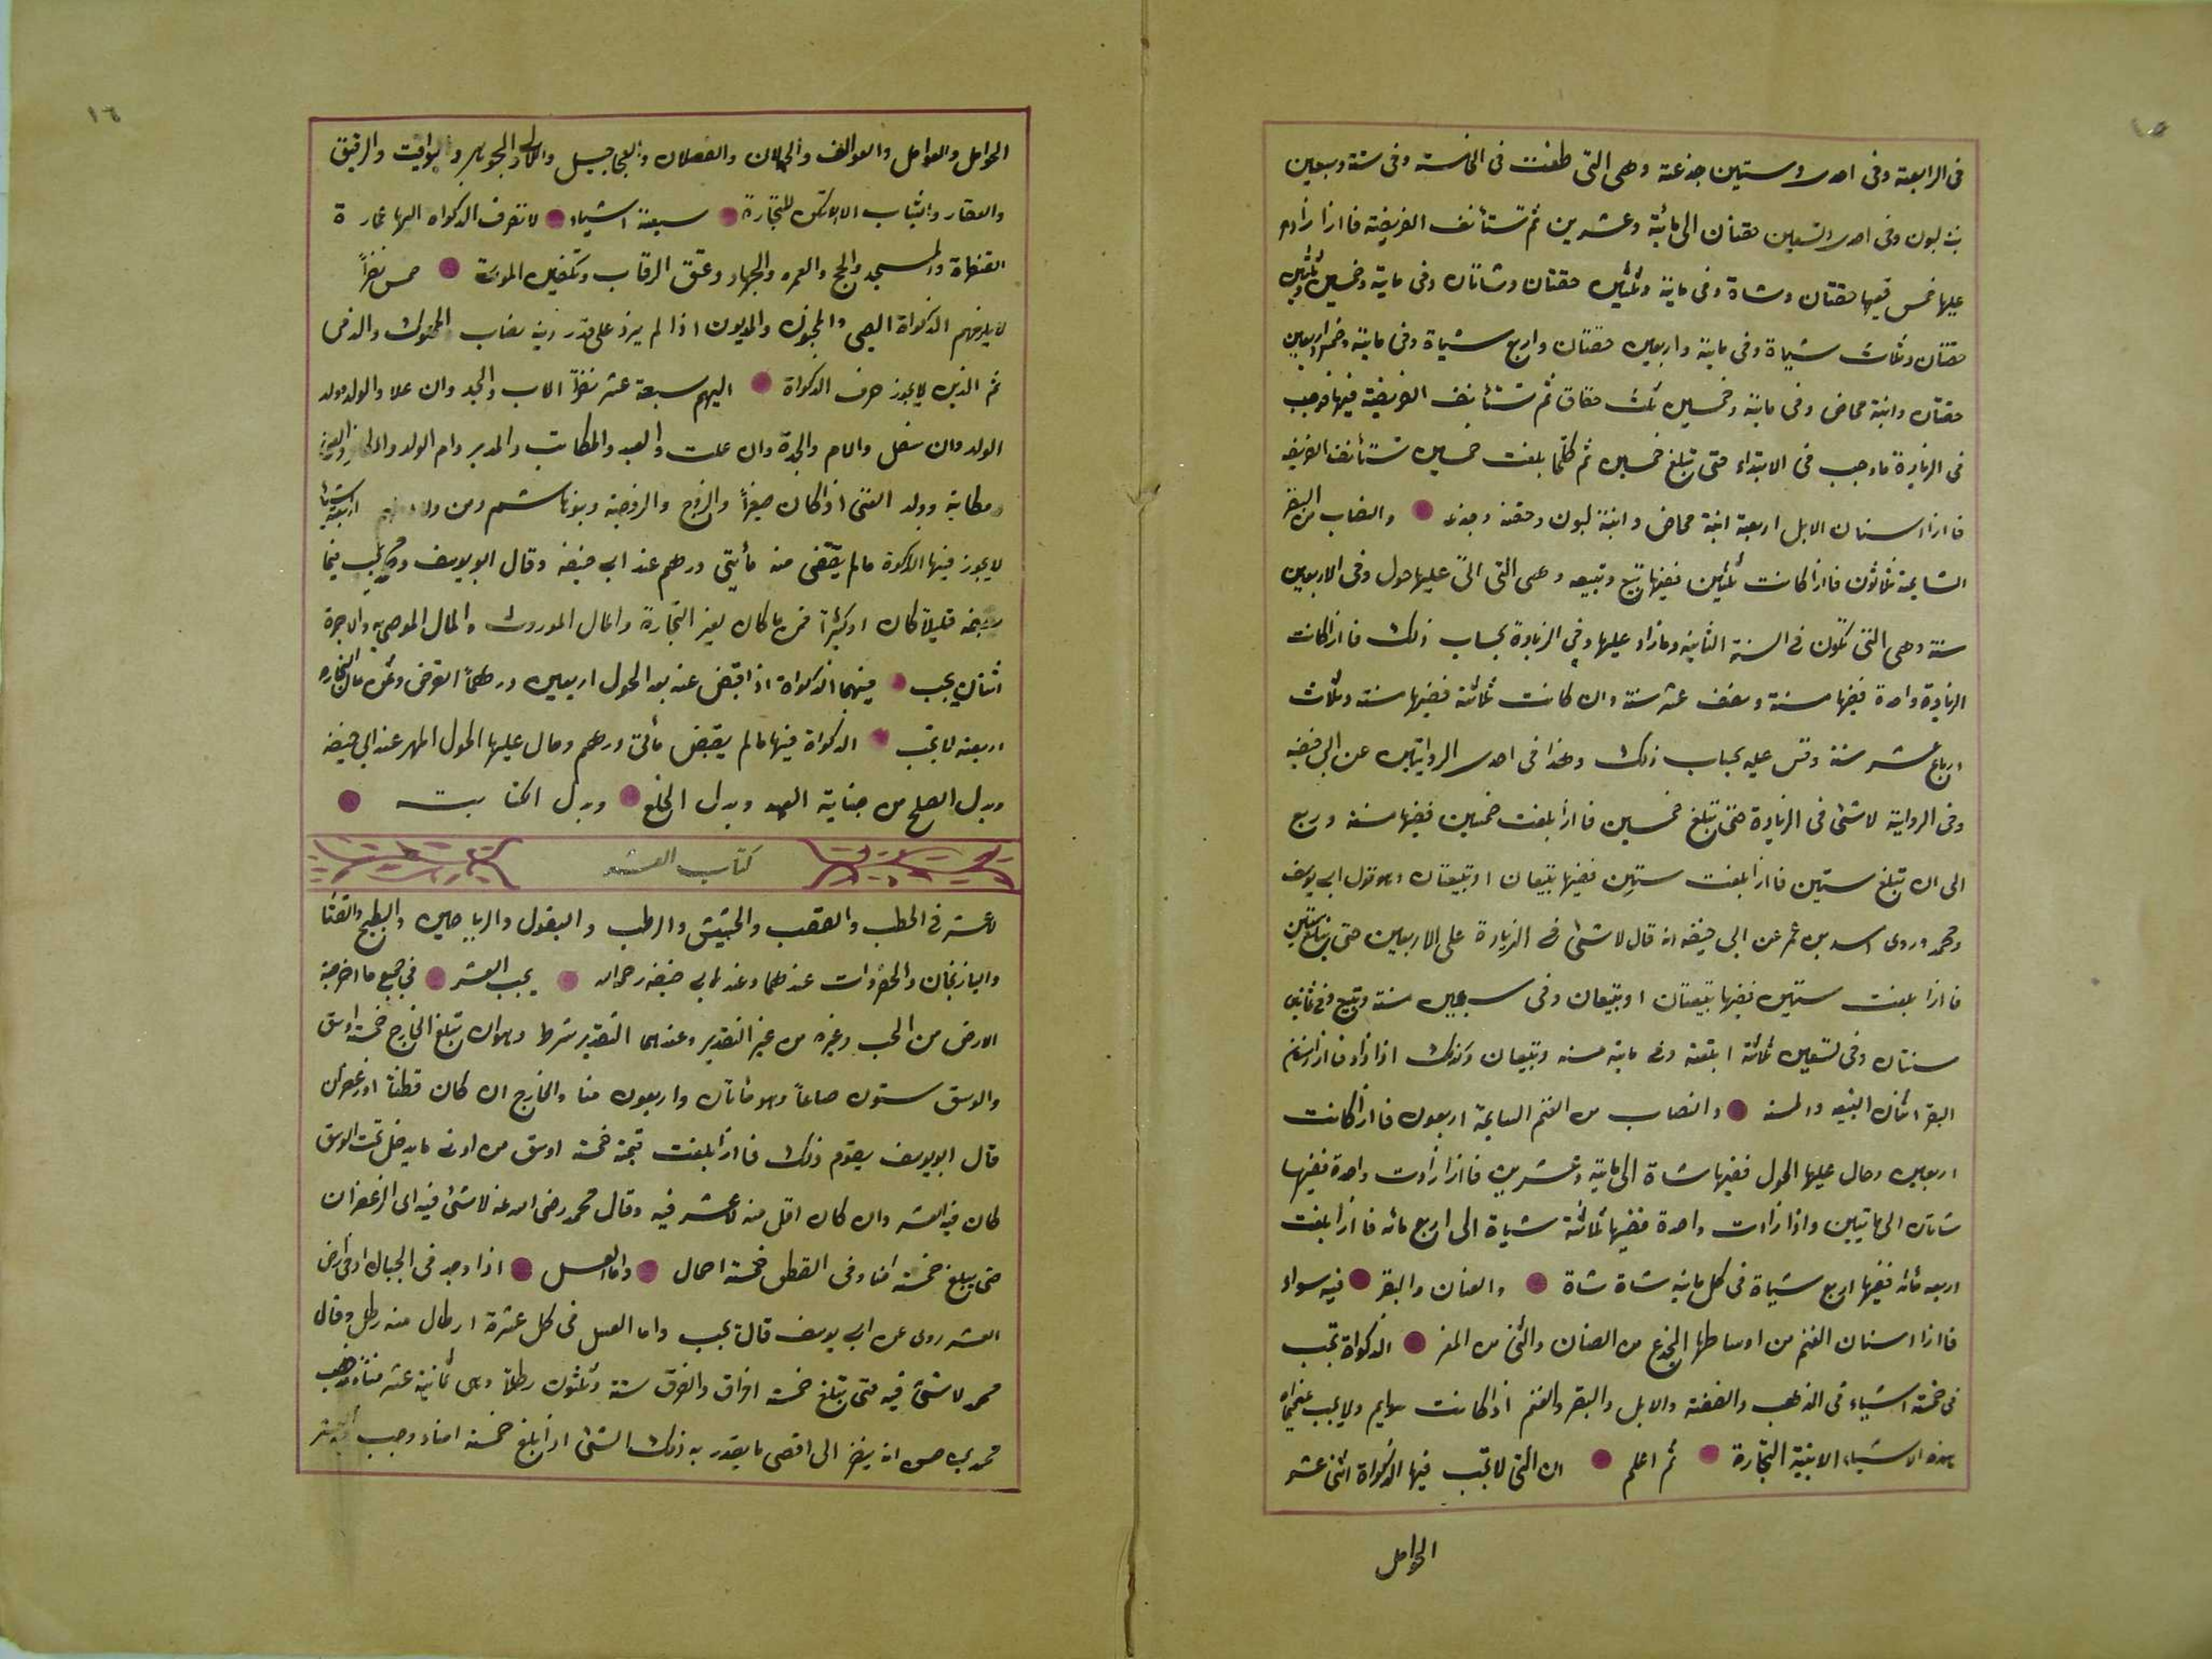 ١٥
فى الرابعة وفى احدى وستين جذعة وهى التى طعنت فى الخامسة وفى ستة وسبعين
بنتا لبون وفى احدى وتسعين حقتان الى مائية وعشرين ثم تستأنف الفريضة فااذا زادت
عليها خمس ففيها حقتان وشاة وفى ماية وثلثين حقتان وشاتان وفى ماية وخمس وثلثين
حقتان وثلث شياة وفى ماية واربعين حقتان واربع شياة وفى ماية وخمس واربعين
حقتان وابنة مخاض وفى ماية وخمسين ثلث حقاق ثم تستأنف الفريضة ففيها فوجب
فى الزيادة ما وجب فى الابتداء حتى تبلغ خمسين ثم كلما بلغت خمسين تستأنف الفريضه
فااذا اسنان الابل اربعة ابنة مخاض وابنة لبون وحقة وجذعه والنصاب من البقر
السايمة ثلاثون فااذا كانت ثلثين ففيها تبيع وتبيعه وهى التى اتى عليها حول وفى الاربعين
سنة وهى التى تكون فى السنة الثانية وما زاد عليها وفى الزيادة بحساب ذلك فااذا كانت
الزيادة واحدة ففيها مسنة ونصف عشر سنة وان كانت ثلاثة ففيها سنة وثلاث
ارباع عشر سنة وقس عليه بحساب ذلك وهذا فى احدى الروايتين عن ابى حنيفه
وفى الرواية لاشئ فى الزيادة حتى تبلغ خمسين فااذا بلغت خمسين ففيها مسنة وربع
الى ان تبلغ ستين فااذا بلغت ستين ففيها تبيعان او تبيعتان وهو قول ابى يوسف
ومحمد وروى اسد بن عمر عن ابى حنيفه انه قال لاشئ فى الزيادة على الاربعين حتى تبلغ ستين
فااذا بلغت ستين ففيها تبيعتان او تبيعان وفى سبعين مسنة وتبيع وفى ثمانين
سنتان وفى تسعين ثلاثة اتبعة وفى ماية مسنه وتبيعان وكذلك اذا زاد فااذا اسنان
البقر اثنان التبيعه والمسنه والنصاب من الغنم السايمة اربعون فااذا كانت
اربعين وحال عليها الحول ففيها شاة الى ماية وعشرين فااذا زادت واحدة ففيها
شاتان الى مايتين واذا زادت واحدة ففيها ثلاثة شياة الى اربع مائه فااذا بلغت
اربعه مائه ففيها اربع شياة فى كل ماية شاة شاة والضان والبقر فيه سواء
فااذا اسنان الغنم من اوساطها الجذع من الضان والثنى من المعز الزكواة تجب
فى خمسة اشياء فى الذهب والفضة والابل والبقر والغنم اذا كانت سوايم ولا يجب
هذه الاشياء الا بنية التجارة ثم اعلم ان التى لا تجب فيها الزكواة اثنى عشر
الحوامل
١٦
الحوامل والعوامل والعوالف والحملان والفصلان والعجاجيل واللآلى والجواهر واليواقيت والرقيق
والعقار والثياب الا لا تكن للتجارة سبعة اشياء لا تصرف الزكواة اليها عمارة
القنطاة والمسجد والحج والعمره والجهاد وعتق الرقاب وتكفين الموتة خمس نفراً
لا يلزمهم الزكواة الصبى والمجنون والمديون اذا لم يزد على قدر دينه نصاب المملوك والذمى
ثم الذين لا يجوز صرف الزكواة اليهم سبعة عشر نفراً الاب والجد وان علا والولد وولد
الولد وان سفل والام والجدة وان علت والعبد والمكاتب والمدبر وام الولد والكافر
ومكاتبه وولد الغنى اذا كان صغيراً والزوج والزوجة وبنو هاشم ومن اربعة اشياء
لا يجوز فيها الزكوة ما لم يقتضى منه مأيتى درهم عند ابى حنيفه وقال ابو يوسف ومحمد يجب فيما
قبضه قليلا كان او كثيراً ثمن ما كان لغير التجارة والمال الموروث والمال الموصى به والاجرة
اثنان يجب فيهما الزكواة اذا قبض عنه بعد الحول اربعين درهماً القرض وثمن مال التجاره
اربعة لا تجب الزكواة فيها ما لم يقبض مائتى درهم وحال عليها الحول المهر عند ابى حنيفه
وبدل الصلح من جناية العمد وبدل الخلع وبدل الكتابت
كتاب العشر
لا عشر فى الحطب والقصب والحشيش والرطب والبقول والرياحين والبطيخ والقثا
والبازنجان والخضروات عندهما وعند ابى حنيفه رحمه الله يجب العشر فى جميع ما اخرجته
الارض من الحب وغيره من غير التقدير وعندهما التقدير شرط وهو ان تبلغ الخارج خمسة اوسق
والوسق ستون صاعاً وهو مائتان واربعون منا والخارج ان كان قطنا او زعفران
قال ابو يوسف يقوم ذلك فااذا بلغت قيمة خمسة اوسق من ادنى ما يدخل تحت الوسق
كان فيه العشر وان كان اقل منه لا عشر فيه وقال محمد رضى الله عنه لا شئ فيه اى الزعفران
حتى يبلغ خمسة امنا وفى القطن خمسة احمال واما العسل اذا وجد فى الجبال او فى ارض
العشر روى عن ابى يوسف قال يجب واما العسل فى كل عشرة ارطال منه رطل وقال
محمد لا شئ فيه حتى تبلغ خمسة افراق والفرق ستة وثلثون رطلا وهى ثمانية عشر منا
محمد يرحمه انه ينظر الى اقصى ما يقدر به ذلك الشئ اذا بلغ خمسة امناء وجب فيه العشر